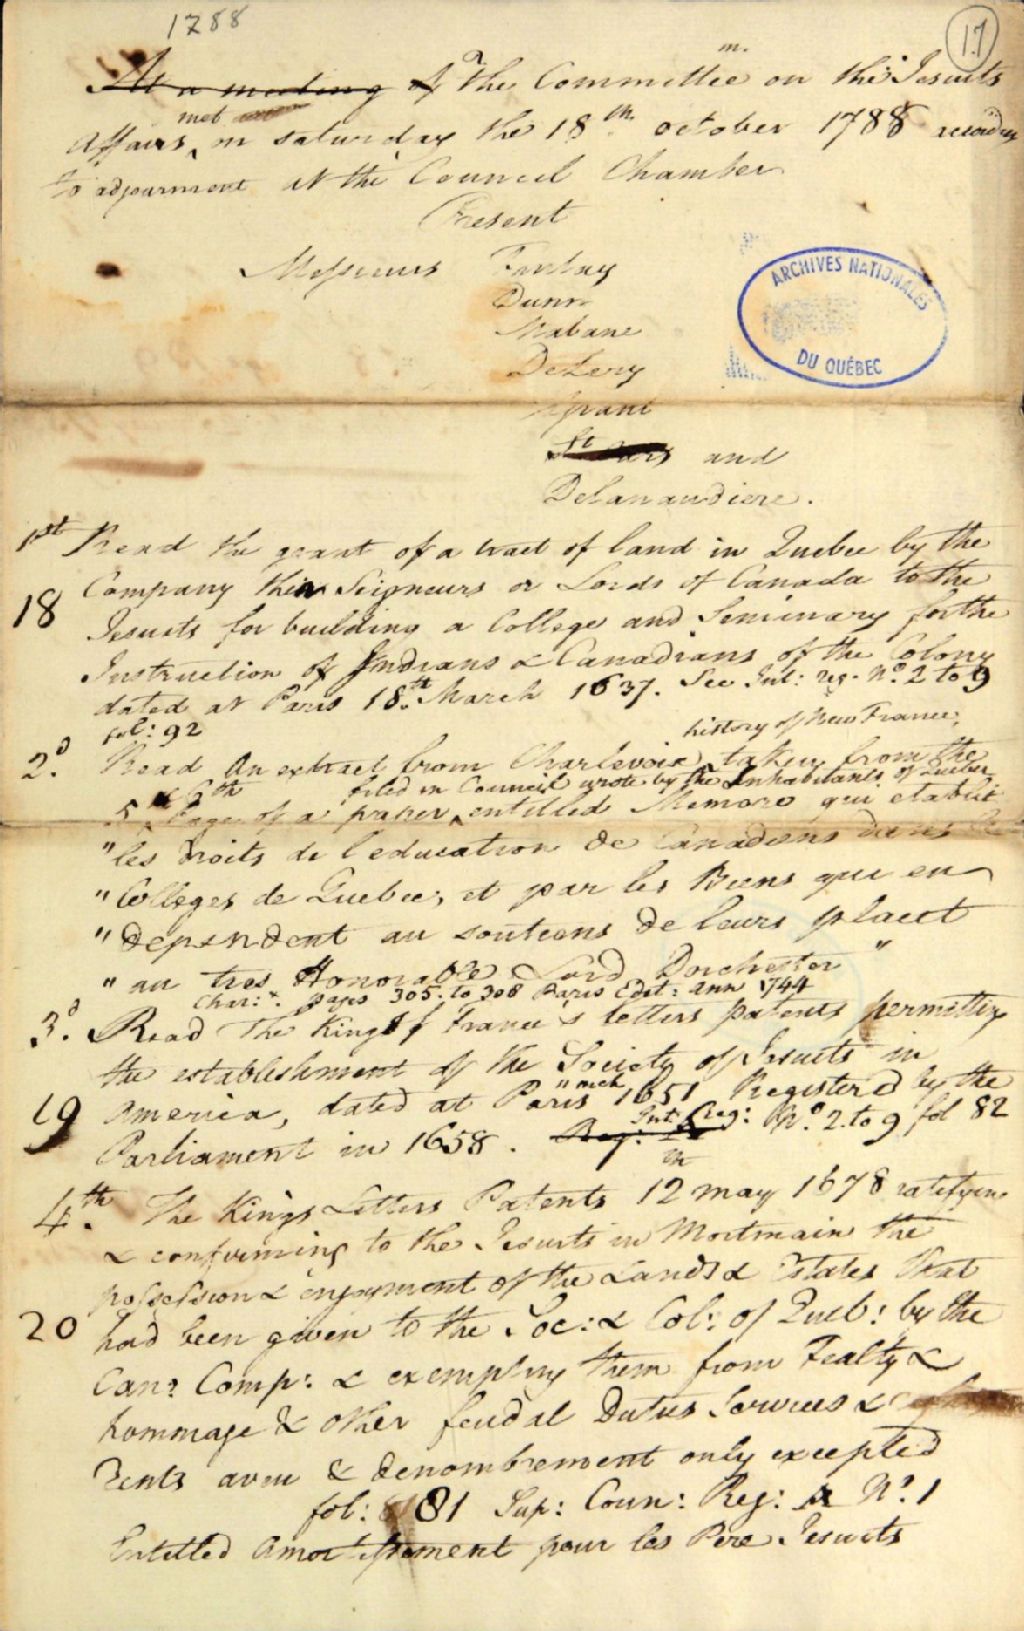 1788
17
At a meeting of the Committee on the Jesuits
met
Affairs, on saturday the 18th october 1788
to adjournment at the Council Chamber
Present
Messieurs Finlay
Dunn
Mabane
DeLery
Grant
St Ours and
Delanaudiere.
ARCHIVES NATIONALES
DU QUÉBEC
1st Read the grant of a tract of land in Quebec by the
Company then Seigneurs or Lords of Canada to the
18 Jesuits for building a College and Seminary for the
Instruction of Indians & Canadians of the Colony
dated at Paris 18th March 1637. See Int: reg. No. 2 to 9
fol: 92
history of New France,
2d. Read An extract from Charlevoix taken from the
filed in Council wrote by the Inhabitants of Quebec
5 & 6th Page of a paper, entitled Memoire qui etablit
"les droits de l'education de Canadiens dans le
"Colleges de Quebec, et par les Biens qui en
"dependent au soutiens de leurs plaect
"au tres Honorable Lord Dorchester"
Char: pages 305. to 308 Paris Edit: ann 1744
3d. Read The King of France's letters patents permitting
the establishment of the Society of Jesuits in
19 America, dated at Paris 1651 Registered by the
Parliament in 1658. Reg: Int: Reg: No. 2 to 9 fol 82
4th. The Kings Letters Patents 12 may 1678 ratifying
& confirming to the Jesuits in Mortmain the
possession & enjoyment of the Lands & Estates that
20 had been given to the Soc: & Col: of Queb: by the
Can: Comp: & exempting them from Fealty &
hommage & other feudal Duties Services &
Rents aveu & denombrement only excepted
fol: 81 Sup: Coun: Reg: A No. 1
Entitled Amortissement pour les Pere Jesuits